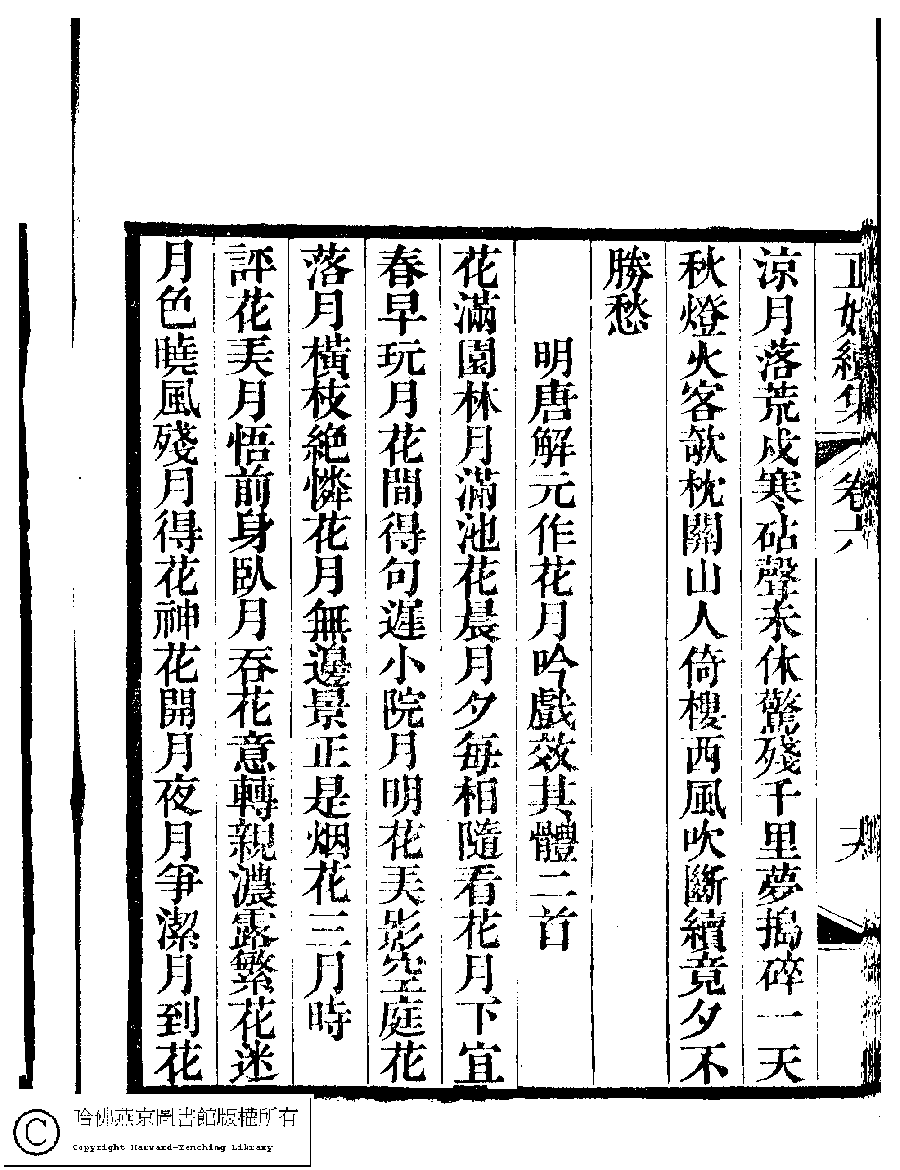 正始續集 卷六
涼月落荒戍寒砧聲未休驚殘千里夢搗碎一天
秋燈火客欹枕關山人倚樓西風吹斷續竟夕不
勝愁
明唐解元作花月吟戲效其體二首
花滿園林月滿池花晨月夕每相隨看花月下宜
春早玩月花間得句遲小院月明花天影空庭花
落月橫枝絶憐花月無邊景正是烟花三月時
評花天月悟前身臥月吞花意轉親濃露繁花迷
月色曉風殘月得花神花開月夜月爭潔月到花
哈佛燕京圖書館版權所有
Copyright Harvard-Yenching Library